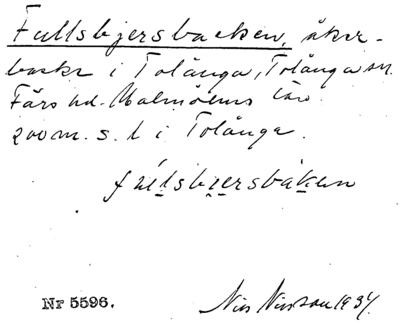 Fullsbjersbacken, åker-
backe i Tolånga, Tolånga sn.
Färs hd. Malmöhus län
200 m. s. k i Tolånga.
fúlsbjersbàken
Nr 5596.
Nils Nilsson 1934.